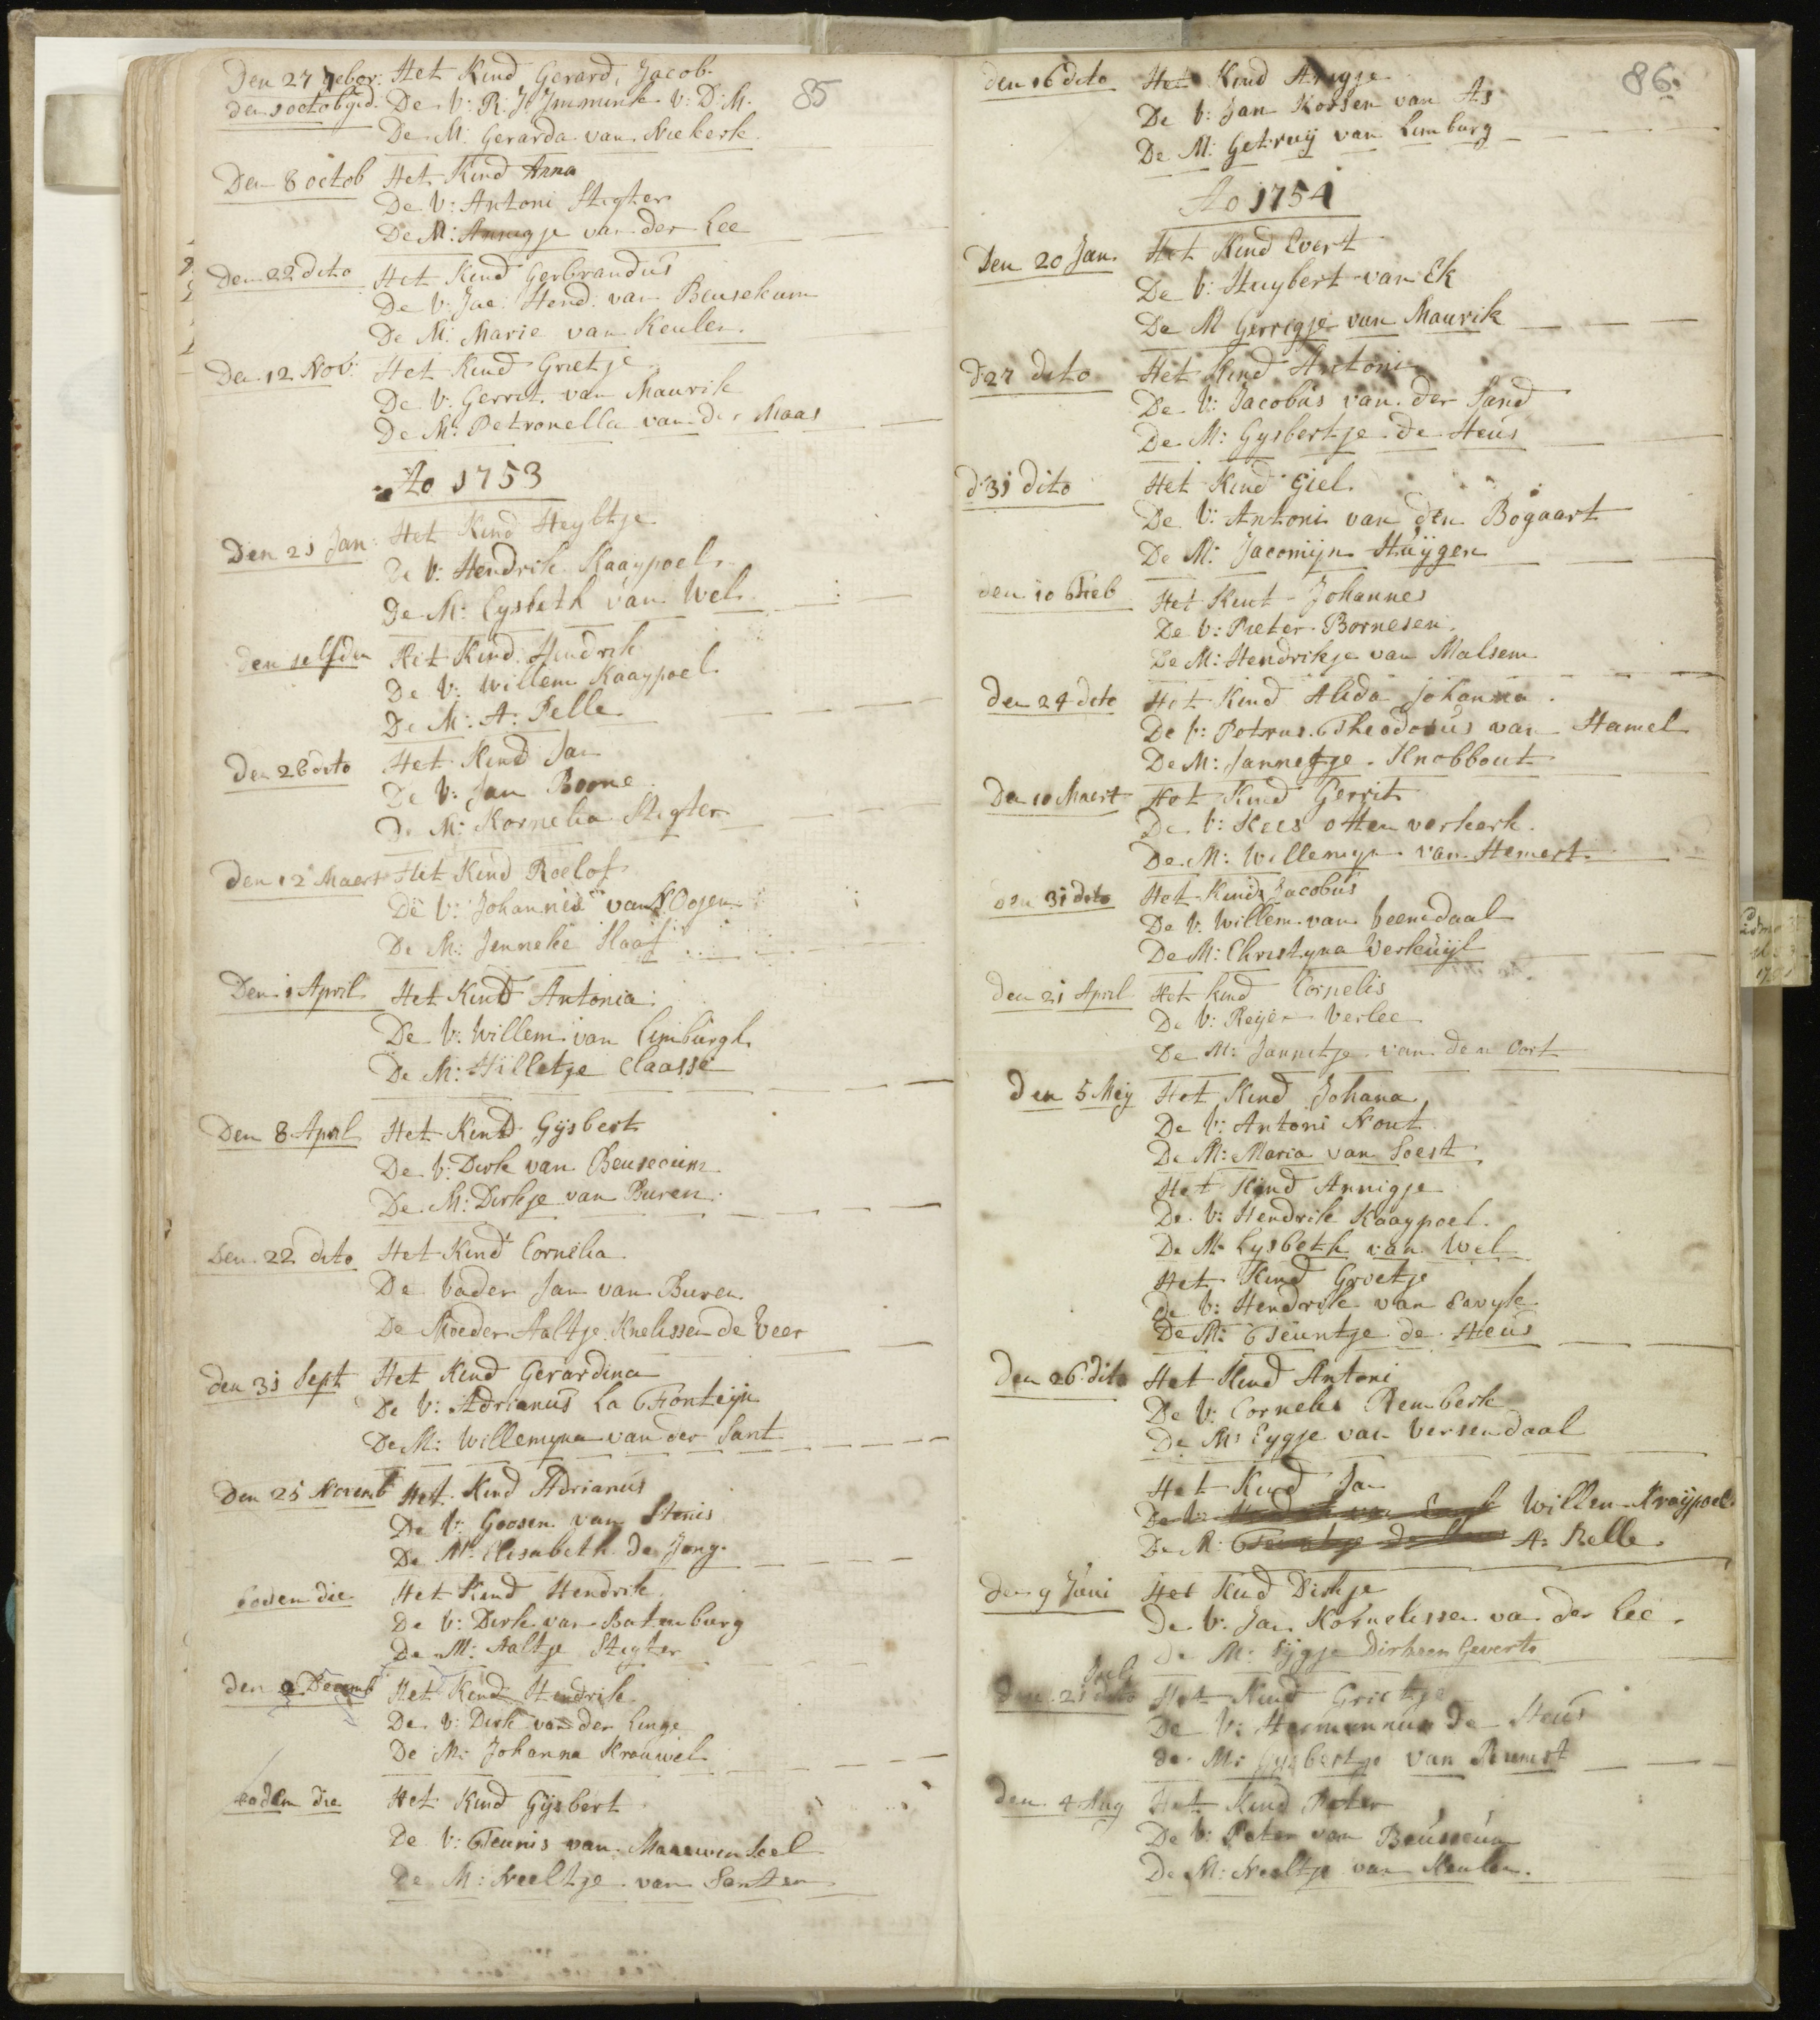 85
Den 27 7ebor: Het Kind Gerard, Jacob.
den 1 octob ged. De V: R: J: Immink V: D: M.
De M: Gerarda van Niekerk
Den 8 octob Het Kind Anna
De V: Antoni Stigter
De M: Annigje van der Lee
Den 22 dito Het Kind Gerbrandus
De V: Jac: Hend: van Beusekum
De M: Marie van Keulen.
Den 12 Nov: Het Kind Grietje
De V: Gerrit van Maurik
De M: Petronella van der Maas
Ao 1753
Den 21 Jan: Het Kind Heyltje
De V: Hendrik Kaaypoel
De M: Lysbeth van Wel
den selfden Het Kind Hendrik
De V: Willem Kaaypoel
De M: A: Pelle
Den 28 dito Het Kind Jan
De V: Jan Boone
De M: Kornelia Stigter
Den 12 Maert Het Kind Roelof
De V: Johannis van Oojen
De M: Jenneke Slaaf
Den 1 April Het Kind Antonia
De V: Willem van Limburgh
De M: Hilletje Claasse
Den 8 April Het Kind Gijsbert
De V: Dirk van Beusecum
De M: Dirkje van Buren.
Den 22 dito Het Kind Cornelia
De Vader Jan van Buren
De Moeder Aaltje Knelissen de Veer
den 31 Sept Het Kind Gerardina
De V: Adrianus La Fonteijn
De M: Willemyna van der Sant
Den 25 Novemb Het Kind Adrianus
De V: Goosen van Stenis
De M: Elisabeth de Jong.
eodem die Het Kind Hendrik
De V: Dirk van Batenburg
De M: Aaltje Stigter
den 2 Decemb Het Kind Hendrik
De V: Dirk van der Linge
De M: Johanna Krouwel
eodem die Het Kind Gijsbert
De V: Teunis van Maurwen Seel
De M: Neeltje van Santen
86.
den 16 dito Het Kind Anigje
De V: Jan Korsen van As
De M: Getruij van Limburg
Ao 1754
Den 20 Jan. Het Kind Evert
De V: Huybert van Ek
De M Gerrigje van Maurik
d 27 dito Het Kind Antoni
De V: Jacobus van der Sand
De M: Gysbertje de Heus
d 31 dito Het Kind Giel.
De V: Antoni van den Bogaart
De M: Jacomijn Huijgen
den 10 Feb Het Kint Johannes
De V: Pieter Bornesen.
De M: Hendrikje van Malsem
den 24 dito Het Kind Alida Johanna.
De V: Petrus Theodorus van Hamel
De M: Jannetje Knobbout
Den 10 Maert Het Kind Gerrit
De V: Kees Otten verkerk.
De M: Willemyn van Hemert.
den 31 dito Het Kind Jacobus
De V: Willem van Veenendaal
De M: Christyna Verkuijl
den 21 April Het kind Cornelis
De V: Reijer Verlee
De M: Jannetje van den Oort
den 5 Meij Het Kind Johana
De V: Antoni Nout
De M: Maria van Soest
Het Kind Annigje
De V: Hendrik Kaaypoel.
De M: Lysbeth van Wel
Het Kind Grietje
De V: Hendrik van Eavyk
De M: Teuntje de Heus
Den 26 dito Het Kind Antoni
De V: Cornelis Bemberk
De M: Eygje van Versendaal
Het Kind Jan
De V: Willem Kraijpoel
De M: Teuntje de Heus A: Pelle.
den 9 Juni Het Kind Dirkje
De V: Jan Kornelissen van der Lee.
De M: Eijgje Dirksen Geverts
Juli
den 21 dito Het Kind Grietje
De V: Hermannus de Heus
de M: Gysbertje van Rumst
den 4 Aug Het Kind Peter
De V: Peter van Beusseum
De M: Neeltje van Keulen.